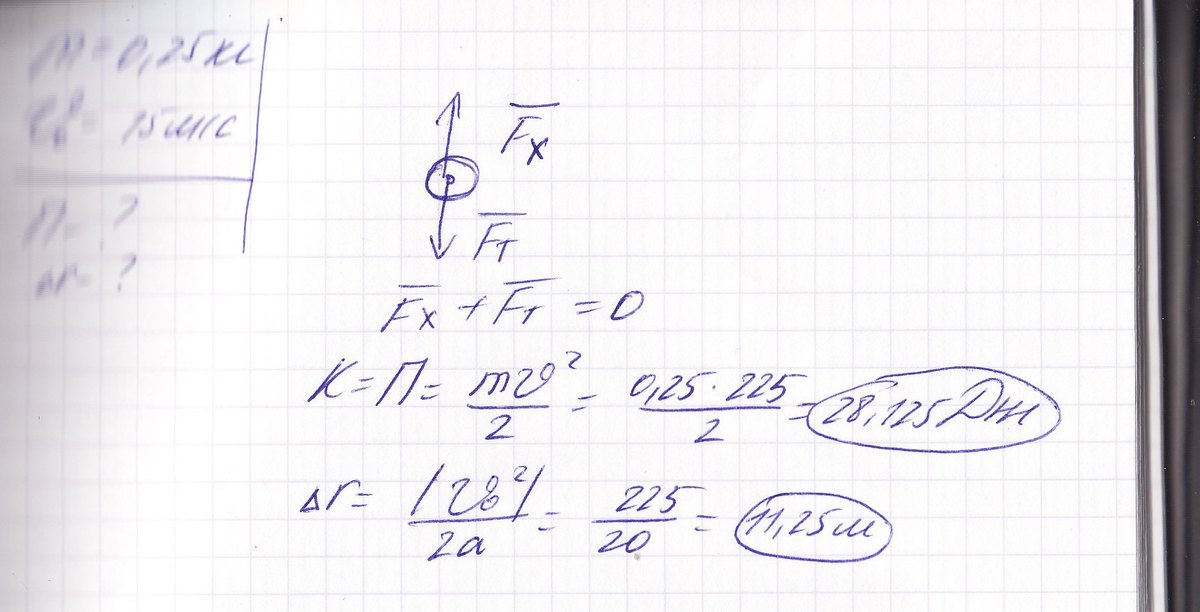 m = 0,25 кг
v₀ = 15 м/с
П = ?
Δr = ?
F̅x
F̅т
F̅x + F̅т = 0
K = П = mv²/2 = 0,25·225/2 = 28,125 Дж
Δr = |v₀²|/2a = 225/20 = 11,25 м